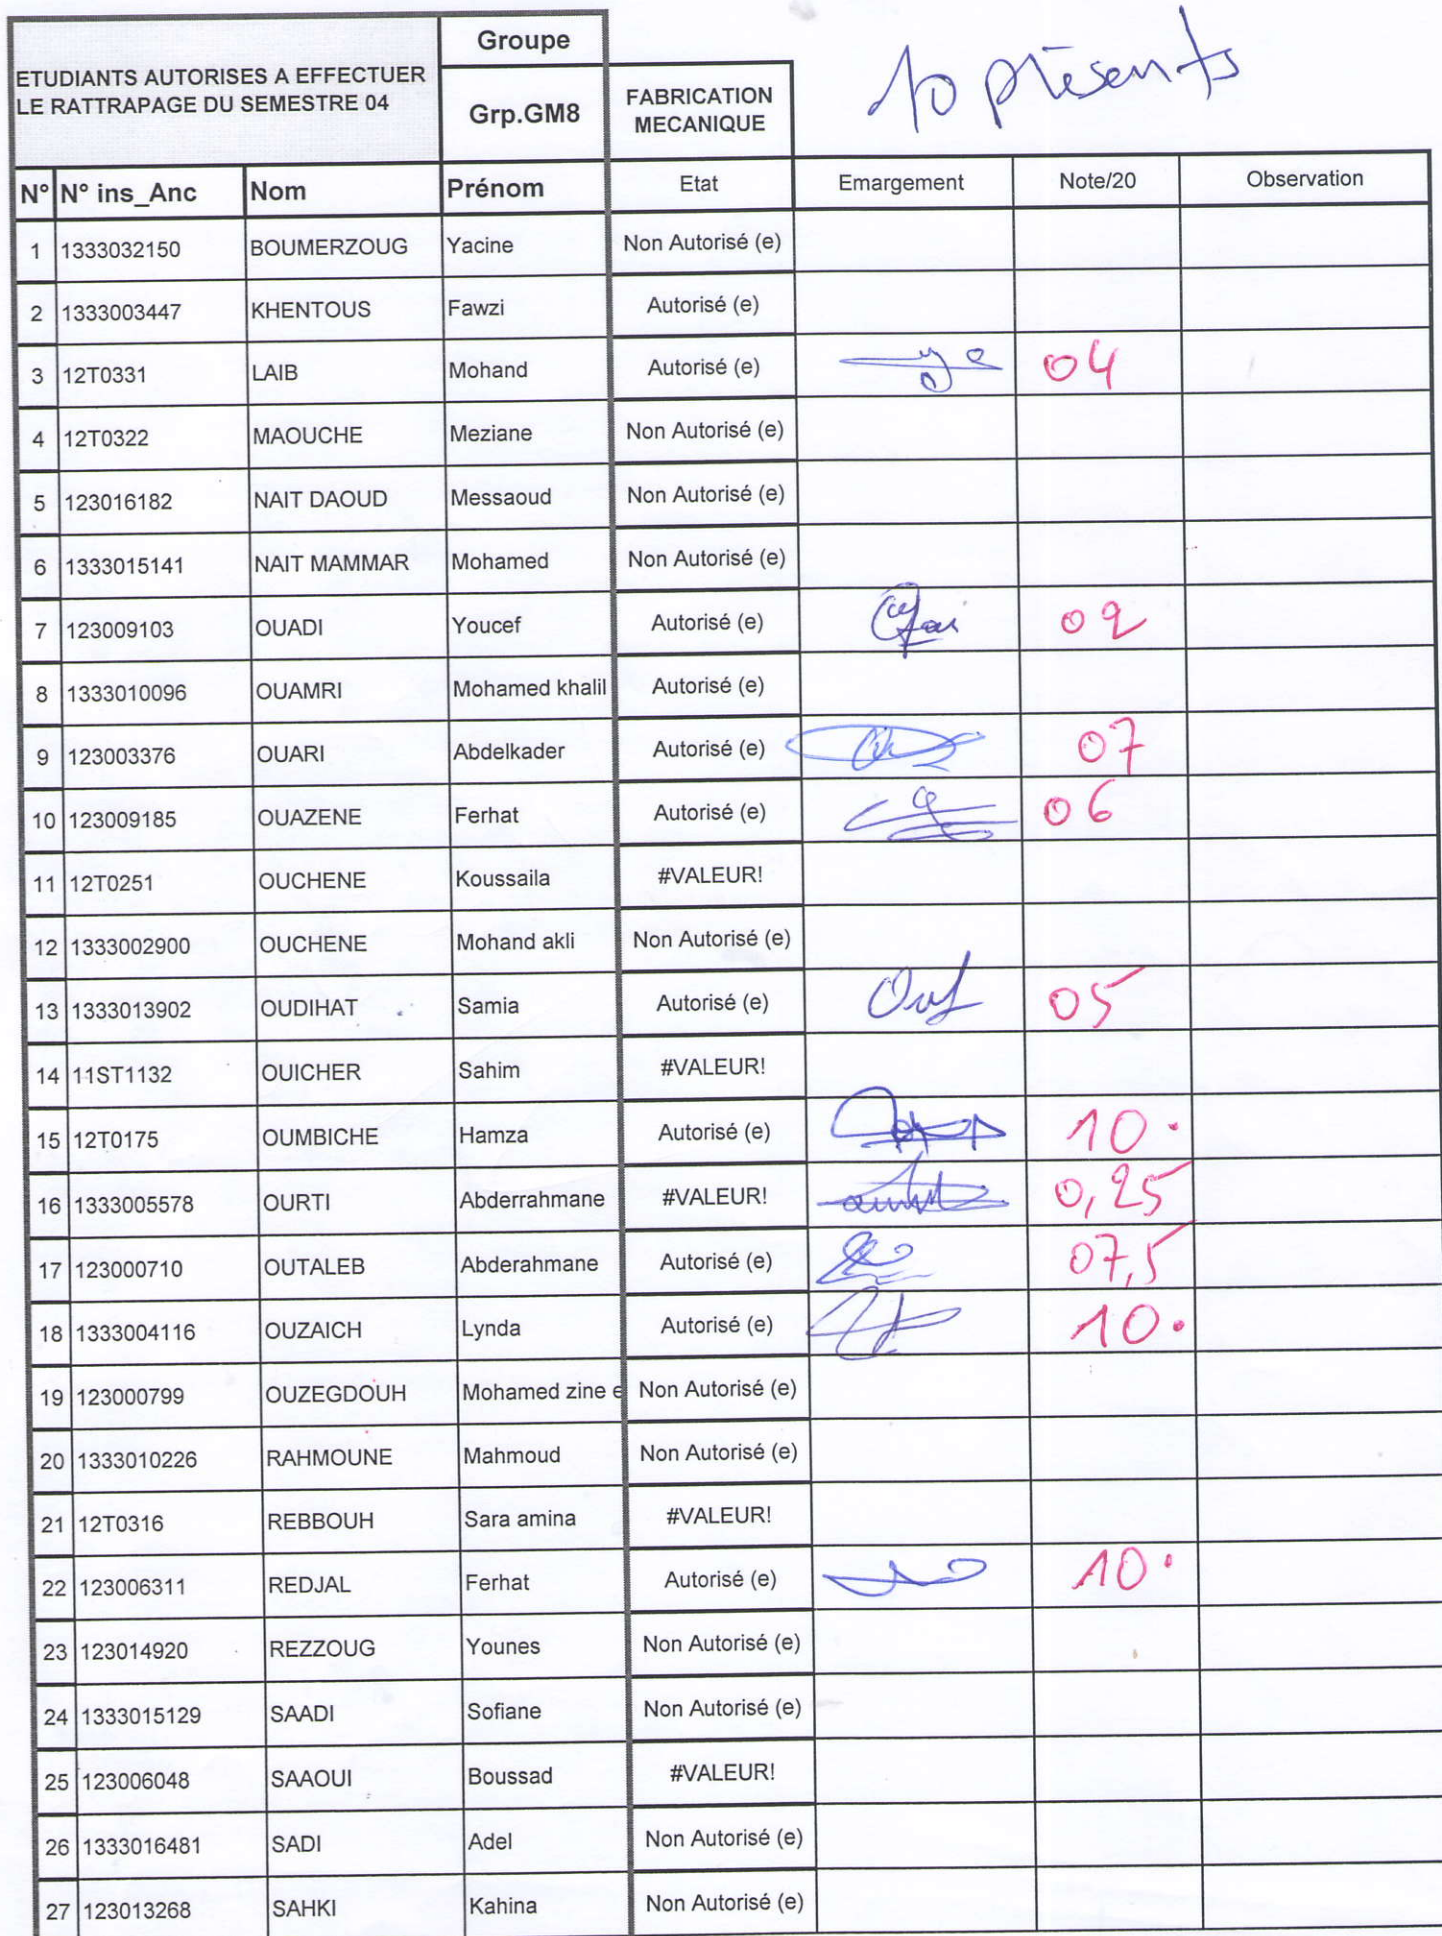 10 présents
ETUDIANTS AUTORISES A EFFECTUER
LE RATTRAPAGE DU SEMESTRE 04
Groupe
Grp.GM8
FABRICATION
MECANIQUE
N° N° ins_Anc Nom Prénom Etat Emargement Note/20 Observation
1 1333032150 BOUMERZOUG Yacine Non Autorisé (e)
2 1333003447 KHENTOUS Fawzi Autorisé (e)
3 12T0331 LAIB Mohand Autorisé (e) 04
4 12T0322 MAOUCHE Meziane Non Autorisé (e)
5 123016182 NAIT DAOUD Messaoud Non Autorisé (e)
6 1333015141 NAIT MAMMAR Mohamed Non Autorisé (e)
7 123009103 OUADI Youcef Autorisé (e) 02
8 1333010096 OUAMRI Mohamed khalil Autorisé (e)
9 123003376 OUARI Abdelkader Autorisé (e) 07
10 123009185 OUAZENE Ferhat Autorisé (e) 06
11 12T0251 OUCHENE Koussaila #VALEUR!
12 1333002900 OUCHENE Mohand akli Non Autorisé (e)
13 1333013902 OUDIHAT Samia Autorisé (e) 05
14 11ST1132 OUICHER Sahim #VALEUR!
15 12T0175 OUMBICHE Hamza Autorisé (e) 10.
16 1333005578 OURTI Abderrahmane #VALEUR! 0,25
17 123000710 OUTALEB Abderahmane Autorisé (e) 07,5
18 1333004116 OUZAICH Lynda Autorisé (e) 10.
19 123000799 OUZEGDOUH Mohamed zine e Non Autorisé (e)
20 1333010226 RAHMOUNE Mahmoud Non Autorisé (e)
21 12T0316 REBBOUH Sara amina #VALEUR!
22 123006311 REDJAL Ferhat Autorisé (e) 10.
23 123014920 REZZOUG Younes Non Autorisé (e)
24 1333015129 SAADI Sofiane Non Autorisé (e)
25 123006048 SAAOUI Boussad #VALEUR!
26 1333016481 SADI Adel Non Autorisé (e)
27 123013268 SAHKI Kahina Non Autorisé (e)